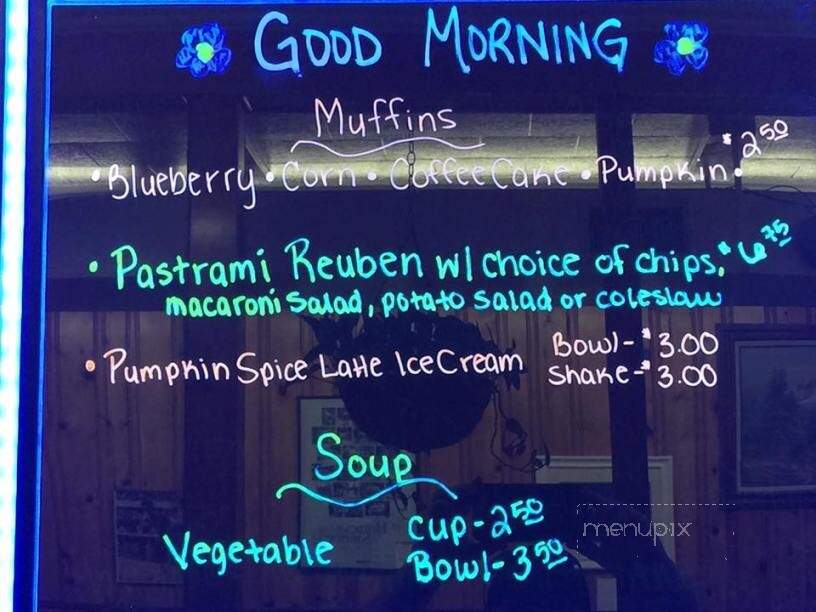 GOOD MORNING
Muffins
• Blueberry • Corn • Coffee Cake • Pumpkin • $2.50
• Pastrami Reuben w/ choice of chips, $6.75
macaroni salad, potato salad or coleslaw
• Pumpkin Spice Latte Ice Cream Bowl - $3.00
Shake - $3.00
Soup
Vegetable cup - 2.50
Bowl - 3.50
menupix